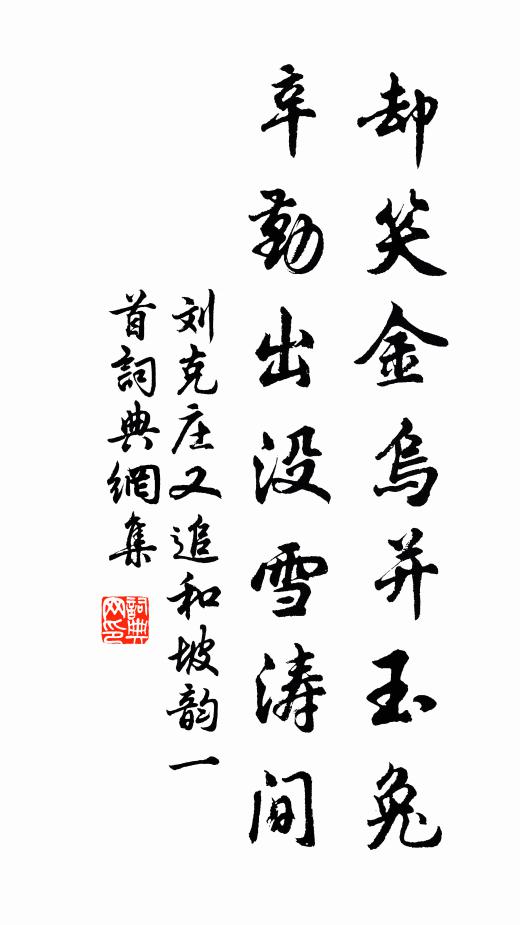 却笑金烏并玉兔
辛勤出没雪涛间
刘克庄又追和坡韵一
首詞典網集
詞典
网印